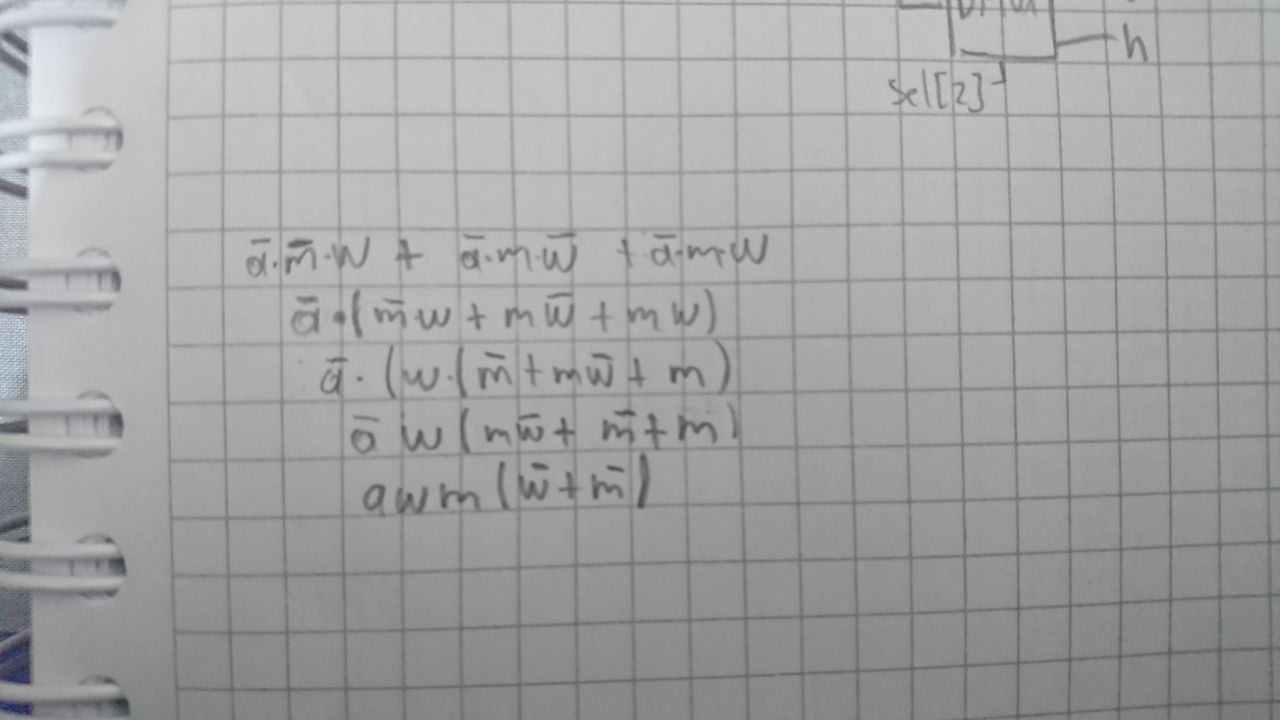 h
sel[2]
ā·m̄·w + ā·m·w̄ + ā·m·w
ā·(m̄w + mw̄ + mw)
ā·(w·(m̄+mw̄+ m)
ā w(mw̄+ m̄+m)
awm(w̄+m̄)